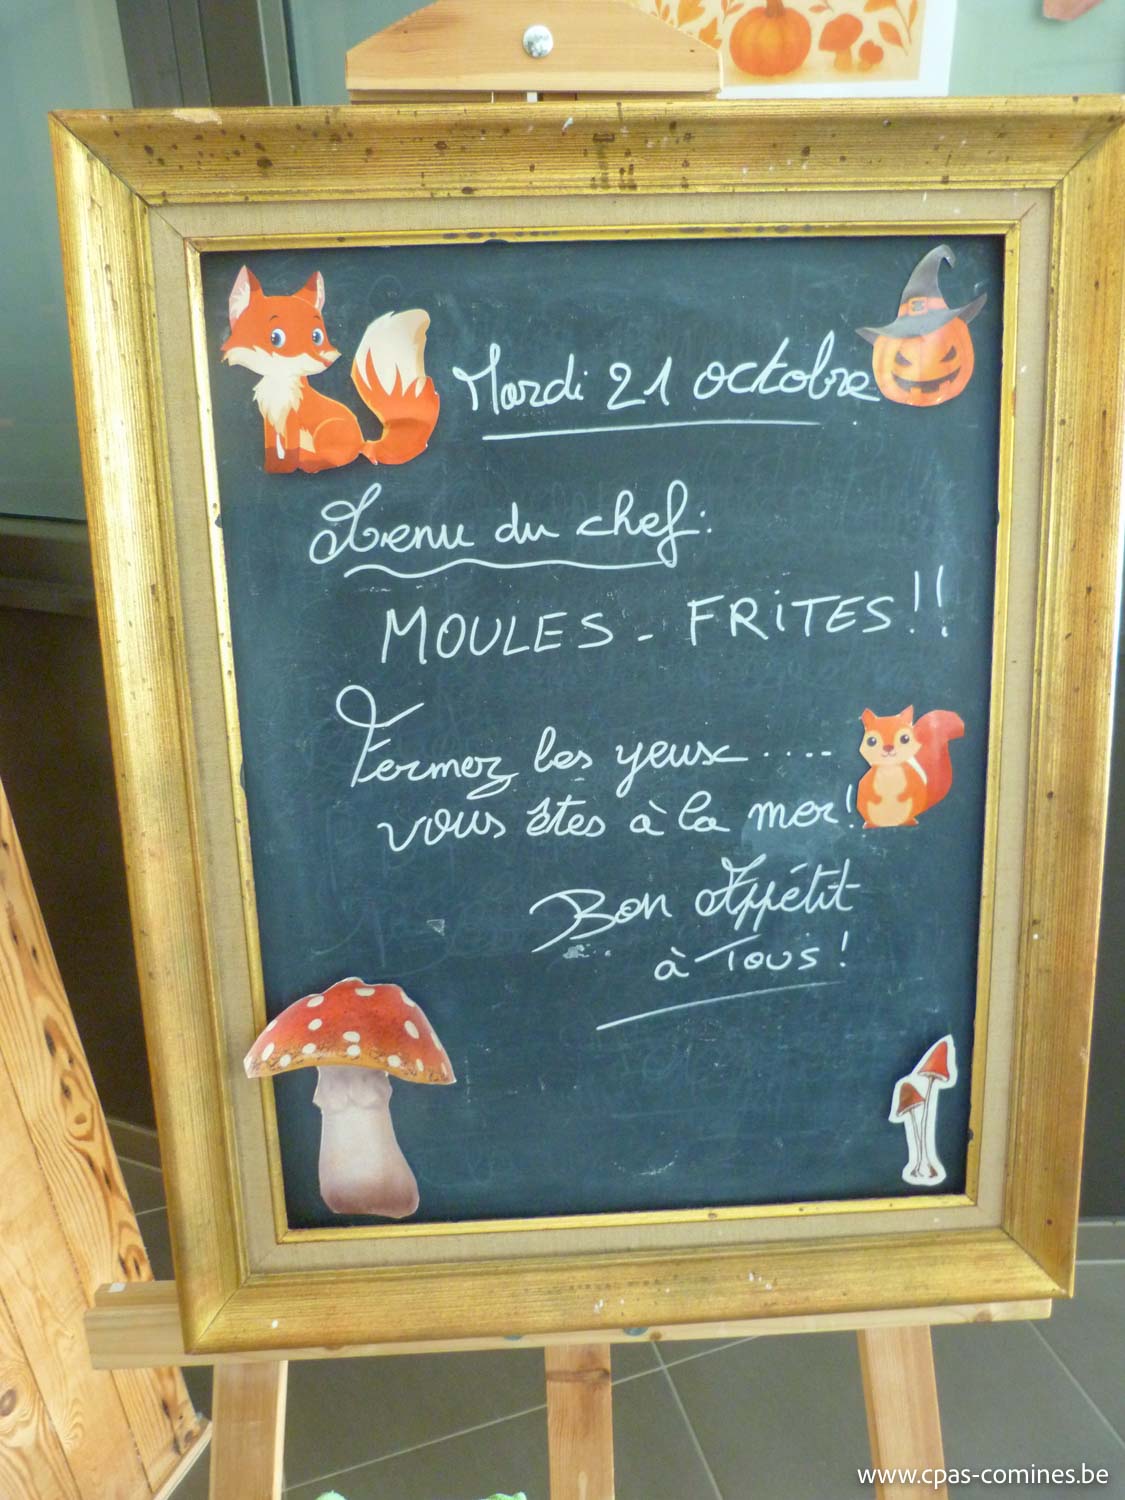 Mardi 21 octobre
Menu du chef:
MOULES - FRITES!!
Fermez les yeux ....
vous êtes à la mer!
Bon Appétit
à Tous!
www.cpas-comines.be